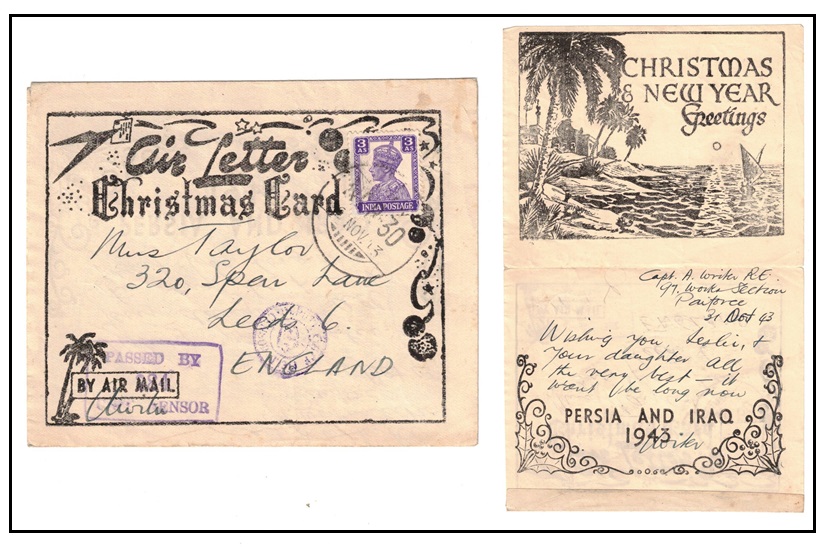 Air Letter
Christmas Card
3 AS 3 AS
INDIA POSTAGE
30
NOV. 43
Mrs Taylor
320, Spen Lane
Leeds 6.
ENGLAND
PASSED BY
BY AIR MAIL
CENSOR
CHRISTMAS
& NEW YEAR
Greetings
Capt. A. Writer R.E.
97, Works Section
Paiforce
31 Oct 43
Wishing you, Leslie, &
Your daughter all
the very best – it
won't be long now
PERSIA AND IRAQ
1943